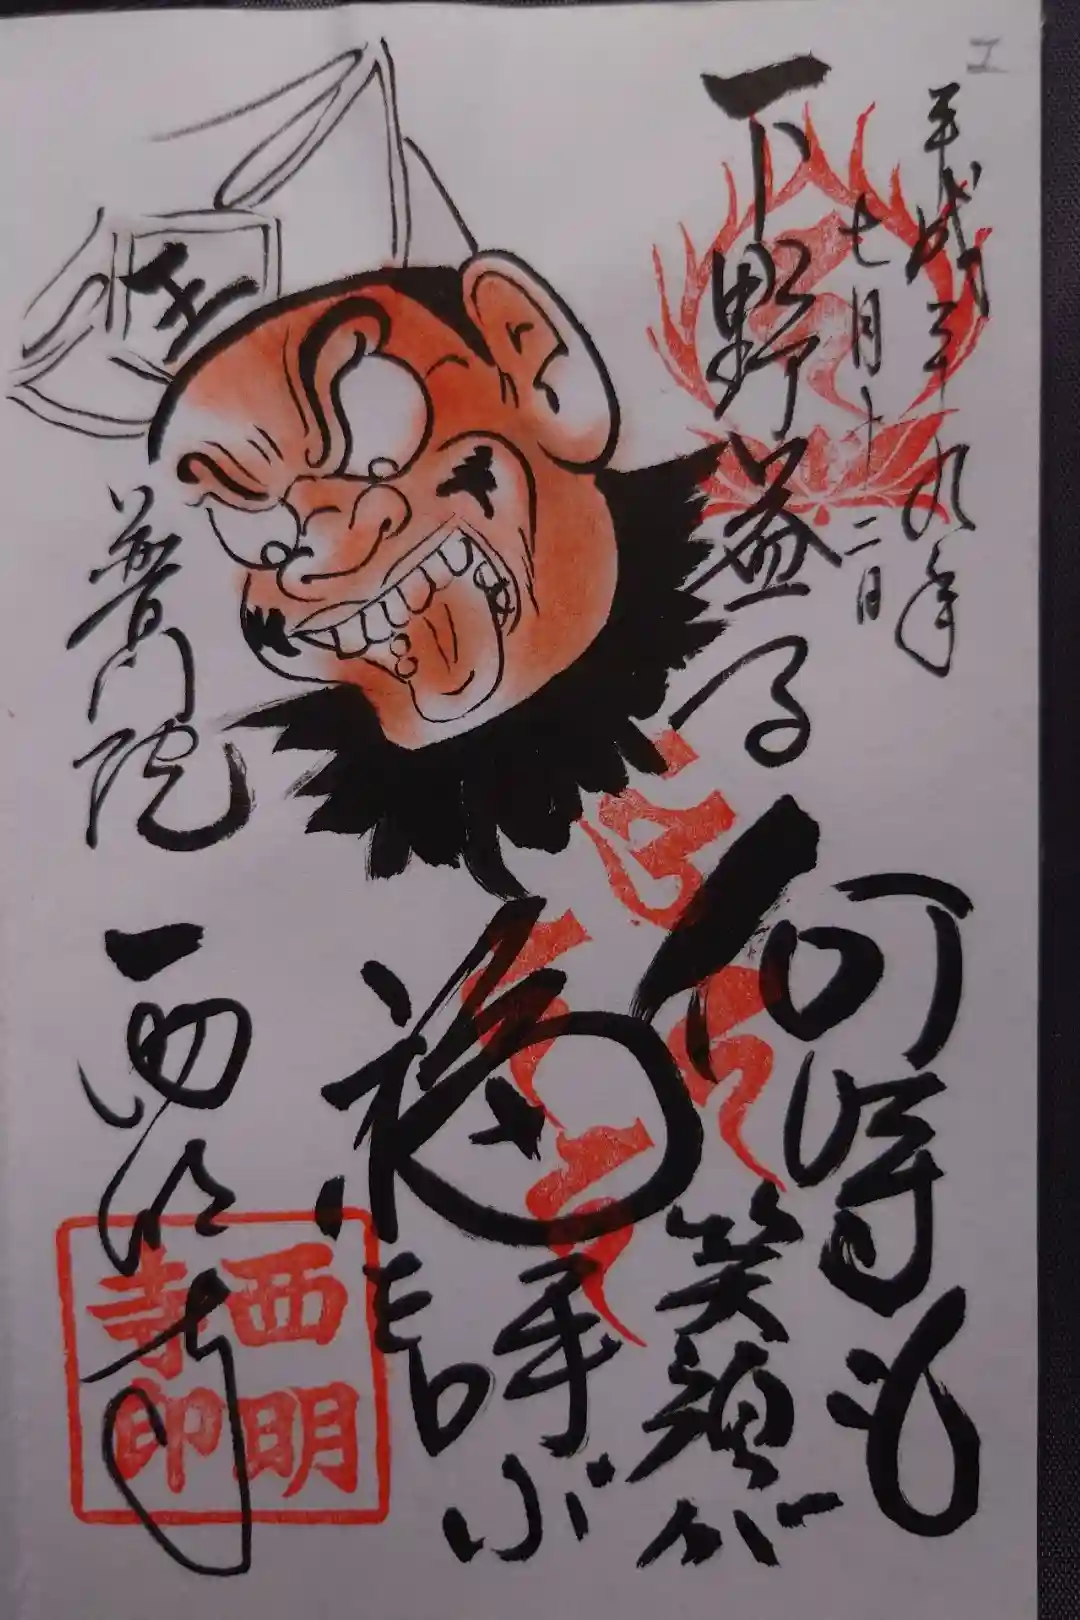 平成二十九年
七月十二日
下野益子
何時も
笑顔が
福を
呼ぶ
王
普門院
西明寺
西明
寺印